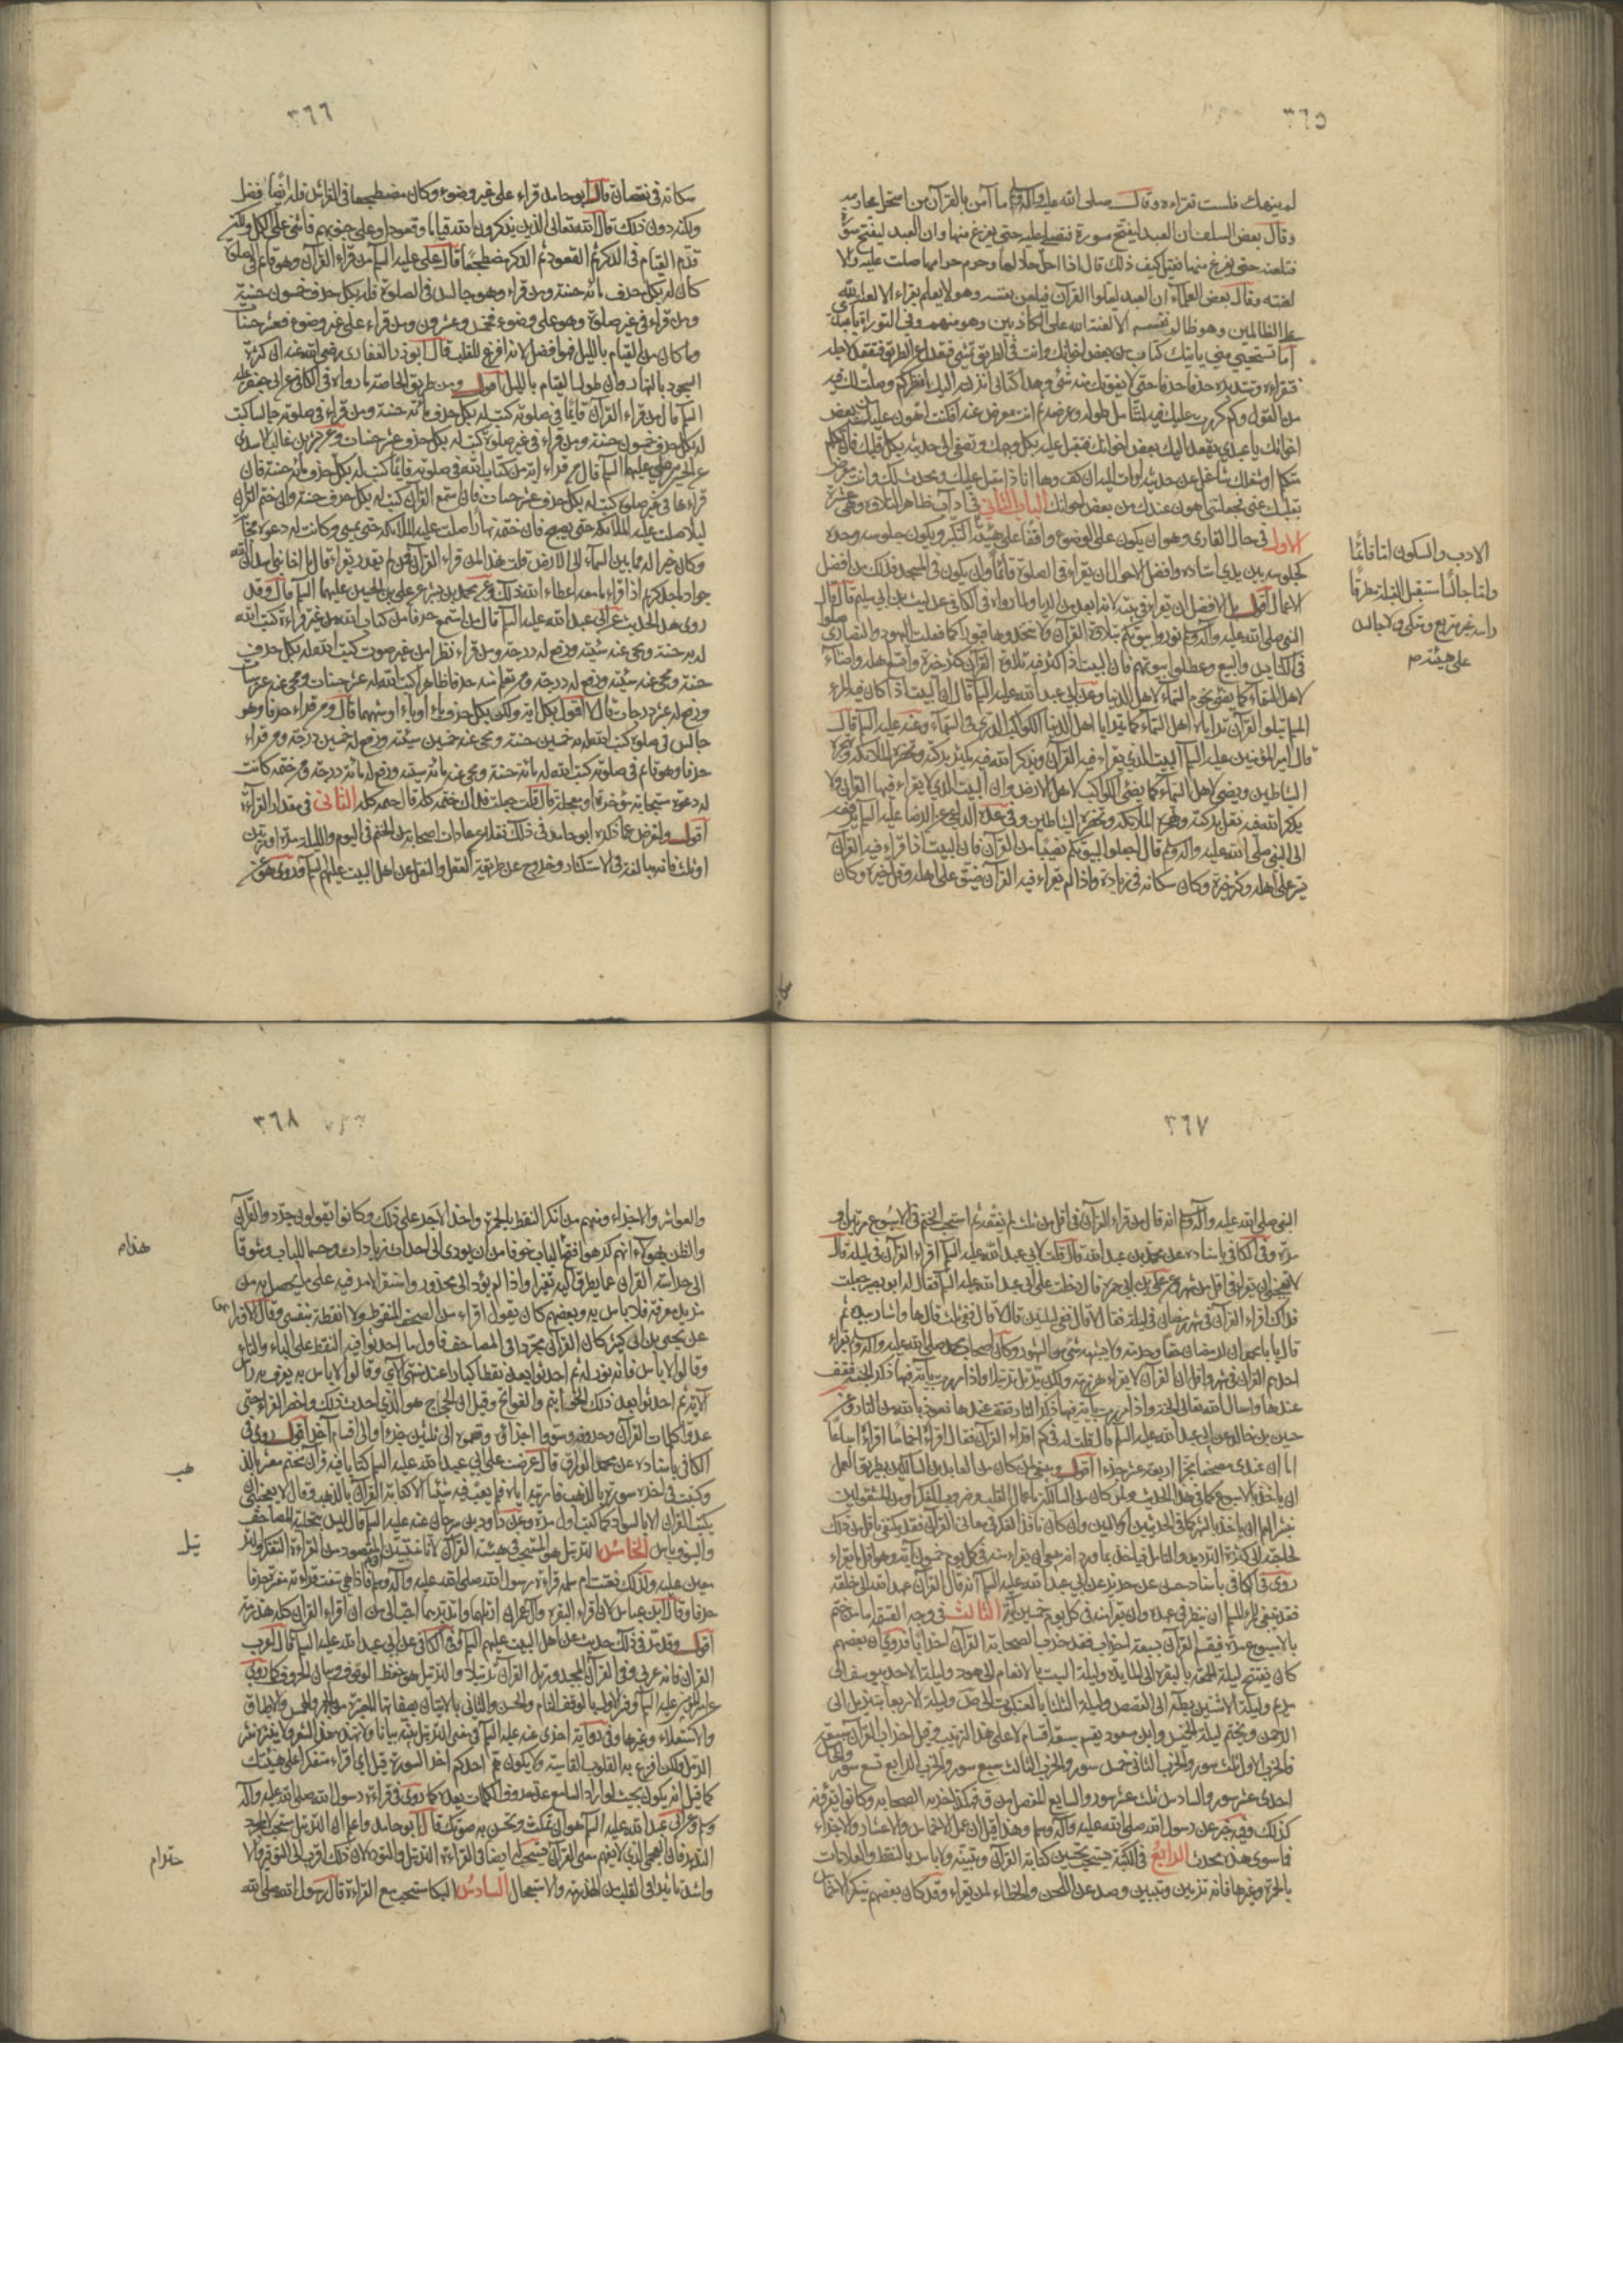 ٣٦٥
لم ينهك فلست تقراءه وقال صلى الله عليه وآله وسلم ما آمن بالقرآن من استحل محارمه
وقال بعض السلف ان العبد ليفتتح سورة فتصلي عليه حتى يفرغ منها وان العبد ليفتح سورة
فتلعنه حتى يفرغ منها فقيل كيف ذلك قال اذا احل حلالها وحرم حرامها صلت عليه والا
لعنته وقال بعض العلماء ان العبد ليتلوا القرآن فيلعن نفسه وهو لا يعلم يقراء الا لعنة الله
على الظالمين وهو ظالم نفسه الا لعنة الله على الكاذبين وهو منهم وفي التوراة يا عبدي
اما تستحيي مني يأتيك كتاب من بعض اخوانك وانت في الطريق تمشي فتعدل عن الطريق وتقعد لاجله
وتقراءه وتتدبره حرفا حرفا حتى لا يفوتك منه شئ وهذا كتابي انزلته اليك انظر كم وصلت لك فيه
من القول وكم كررت عليك فيه لتتأمل طوله وعرضه ثم انت معرض عنه افكنت اهون عليك من بعض
اخوانك يا عبدي يقعد اليك بعض اخوانك فتقبل عليه بكل وجهك وتصغي الى حديثه بكل قلبك فان تكلم
متكلم او شغلك شاغل عن حديثه اومأت اليه ان كف وها انا ذا مقبل عليك ومحدث لك وانت معرض
بقلبك عني فجعلتني اهون عندك من بعض اخوانك الباب الثاني في آداب ظاهر التلاوة وهي عشرة
الاول في حال القاري وهو ان يكون على الوضوء واقفا على هيئة التكبر ويكون جلوسه وحده
كجلوسه بين يدي استاده وافضل الاحوال ان يقراء في الصلوة قائما وان يكون في المسجد فذلك من افضل
الاعمال اقول بل الافضل ان يقراء في بيته لانه ابعد من الريا ولما رواه في الكافي عن ليث بن ابي سليم قال قال
النبي صلى الله عليه وآله وسلم نوروا بيوتكم بتلاوة القرآن ولا تتخذوها قبورا كما فعلت اليهود والنصارى صلوا
في الكنايس والبيع وعطلوا بيوتهم فان البيت اذا كثر فيه تلاوة القرآن كثر خيره واتسع اهله واضاء
لاهل السماء كما تضئ نجوم السماء لاهل الدنيا وعن ابي عبد الله عليه السلم قال ان البيت اذا كان فيه المرء
المسلم يتلوا القرآن يترايا لاهل السماء كما يترايا اهل الدنيا الكوكب الدري في السماء وعنه عليه السلم قال
قال امير المؤمنين عليه السلم البيت الذي يقراء فيه القرآن ويذكر الله فيه يكثر بركته وتحضره الملائكة وتهجره
الشياطين ويضئ لاهل السماء كما يضئ الكواكب لاهل الارض وان البيت الذي لا يقراء فيه القرآن ولا
يذكر الله فيه تقل بركته وتهجره الملائكة وتحضره الشياطين وفي عدة الداعي عن الرضا عليه السلم يرفعه
الى النبي صلى الله عليه وآله وسلم قال اجعلوا لبيوتكم نصيبا من القرآن فان البيت اذا قراء فيه القرآن
تيسر على اهله وكثر خيره وكان سكانه في زيادة واذا لم يقراء فيه القرآن ضيق على اهله وقل خيره وكان
الادب والسكون اما قائما
واما جالسا مستقبل القبلة مطرقا
راسه غير متربع ومتكئ ولا جالس
على هيئة
٣٦٦
سكانه في نقصان قال ابو حامد فان قراء على غير وضوء وكان مضطجعا في الفراش فله ايضا فضل
ولكنه دون ذلك قال الله تعالى الذين يذكرون الله قياما وقعودا وعلى جنوبهم فاثنى على الكل ولكن
قدم القيام في الذكر ثم القعود ثم الذكر مضطجعا قال علي عليه السلم من قراء القرآن وهو قائم في الصلوة
كان له بكل حرف مائة حسنة ومن قراء وهو جالس في الصلوة فله بكل حرف خمسون حسنة
ومن قراء في غير صلوة وهو على وضوء فخمس وعشرون ومن قراء على غير وضوء فعشر حسنات
وما كان من القيام بالليل فهو افضل لانه افرغ للقلب قال ابو ذر الغفاري رضي الله عنه ان كثرة
السجود بالنهار وان طول القيام بالليل اقول ومن طريق الخاصة ما رواه في الكافي عن ابي جعفر عليه
السلم قال من قراء القرآن قائما في صلوته كتب له بكل حرف مائة حسنة ومن قراء في صلوته جالسا كتب
له بكل حرف خمسون حسنة ومن قراء في غير صلوة كتب له بكل حرف عشر حسنات وعن بشر بن غالب الاسدي
عن الحسين بن علي عليهما السلم قال من قراء اية من كتاب الله في صلوته قائما كتب له بكل حرف مائة حسنة فان
قراءها في غير صلوة كتب له بكل حرف عشر حسنات فان استمع القرآن كتب له بكل حرف حسنة وان ختم القرآن
ليلا صلت عليه الملائكة حتى يصبح فان ختمه نهارا صلت عليه الملائكة حتى يمسي وكانت له دعوة مجابة
وكان خيرا له مما بين السماء الى الارض قلت هذا لمن قراء القرآن فمن لم يقراء قال يا اخا بني اسد ان الله
جواد ماجد كريم اذا قراء ما معه اعطاه الله ذلك وعن محمد بن بشير عن علي بن الحسين عليهما السلم قال وقد
روى هذا الحديث عن ابي عبد الله عليه السلم قال من استمع حرفا من كتاب الله من غير قراءة كتب الله
له به حسنة ومحى عنه سيئة ورفع له درجة ومن قراء نظرا من غير صوت كتب الله له بكل حرف
حسنة ومحى عنه سيئة ورفع له درجة ومن تعلم منه حرفا ظاهرا كتب الله له عشر حسنات ومحى عنه عشر سيئات
ورفع له عشر درجات قال لا اقول بكل اية ولكن بكل حرف باء او ياء او شبههما قال ومن قراء حرفا وهو
جالس في صلوة كتب الله له به خمسين حسنة ومحى عنه خمسين سيئة ورفع له خمسين درجة ومن قراء
حرفا وهو قائم في صلوته كتب الله له مائة حسنة ومحى عنه مائة سيئة ورفع له مائة درجة ومن ختمه كانت
له دعوة مستجابة مؤخرة او معجلة قال قلت جعلت فداك ختمه كله قال ختمه كله الثاني في مقدار القراءة
اقول ولنعرض عما ذكره ابو حامد في ذلك نقلا عن عادات اصحابه من الختم في اليوم والليلة مرة او مرتين
او ثلث فانه مبالغة في الاستكثار وخروج عن طريقة العقل والنقل عن اهل البيت عليهم السلم وقد روى هو عن
٣٦٧
النبي صلى الله عليه وآله وسلم انه قال من قراء القرآن في اقل من ثلث لم يفقه ثم استحب الختم في الاسبوع مرتين او
مرة وفي الكافي باسناده عن محمد بن عبد الله قال قلت لابي عبد الله عليه السلم اقراء القرآن في ليلة قال
لا يعجبني ان تقراءه في اقل من شهر وعن علي بن ابي حمزة قال دخلت على ابي عبد الله عليه السلم فقال له ابو بصير جعلت
فداك اقراء القرآن في شهر رمضان في ليلة فقال لا قال ففي ليلتين قال لا قال ففي ثلث قال ها واشار بيده ثم
قال يا با محمد ان لرمضان حقا وحرمة ولا يشبهه شئ من الشهور وكان اصحاب محمد صلى الله عليه وآله وسلم يقراء
احدهم القرآن في شهر او اقل ان القرآن لا يقراء هذرمة ولكن يرتل ترتيلا واذا مررت باية فيها ذكر الجنة فقف
عندها واسال الله تعالى الجنة واذا مررت باية فيها ذكر النار فقف عندها وتعوذ بالله من النار وعن
حسين بن خالد عن ابي عبد الله عليه السلم قال قلت له في كم اقراء القرآن فقال اقراءه اخماسا اقراءه اسباعا
اما ان عندي مصحفا مجزا اربعة عشر جزءا اقول وينبغي لمن كان من العابدين السالكين بطريق العمل
ان ياخذ بالاسبوع كما في هذا الحديث ولمن كان من السالكين باعمال القلب وضروب الفكر او من المشتغلين
بنشر العلم ان ياخذ بالشهر كما في الحديثين الاولين وان كان نافذ الفكر في معاني القرآن فقد يكتفي باقل من ذلك
لحاجته الى كثرة الترديد والتامل فياخذ بما ورد انه ينبغي ان يقراء منه في كل يوم خمسون آية وهو اقل ما يقراء
روى في الكافي باسناد حسن عن حريز عن ابي عبد الله عليه السلم انه قال القرآن عهد الله الى خلقه
فقد ينبغي للمرء المسلم ان ينظر في عهده وان يقراء منه في كل يوم خمسين آية الثالث في وجه القسمة اما من ختم
بالاسبوع مرة فيقسم القرآن بسبعة احزاب فقد حزب الصحابة القرآن احزابا فروي ان بعضهم
كان يفتتح ليلة الجمعة بالبقرة الى المائدة وليلة السبت بالانعام الى هود وليلة الاحد بيوسف الى
مريم وليلة الاثنين بطه الى القصص وليلة الثلثا بالعنكبوت الى ص وليلة الاربعا بتنزيل الى
الرحمن ويختم ليلة الخميس وابن مسعود يقسم بسبعة اقسام لا على هذا الترتيب وقيل احزاب القرآن سبعة
فالحزب الاول ثلث سور والحزب الثاني خمس سور والحزب الثالث سبع سور والحزب الرابع تسع سور والخامس
احدى عشر سور والسادس ثلث عشر سور والسابع المفصل من ق فهكذا حزبه الصحابة وكانوا يقرؤنه
كذلك وفيه خبر عن رسول الله صلى الله عليه وآله وسلم وهذا قبل ان عمل الاخماس والاعشار والاجزاء
فما سوى هذا محدث الرابع في الكتبة يستحب تحسين كتابة القرآن وتبيينه ولا باس بالنقط والعلامات
بالحمرة وغيرها فانه تزيين وتبيين وصد عن اللحن والخطاء لمن يقراءه وقد كان بعضهم ينكر الاخماس
٣٦٨
والعواشر والاجزاء ومنهم من انكر النقط بالحمرة واخذ الاجر على ذلك وكانوا يقولون جردوا القرآن
والظن بهولاء انهم كرهوا فتح الباب خوفا من ان يودى الى احداث زيادات وحسما للباب وشوقا
الى حراسة القرآن عما يطرق اليه تغيرا واذا لم يؤد الى محذور واستقر الامر فيه على ما يحصل به من
مزيد معرفة فلا باس به وبعضهم كان يقول اقراء من المصحف المنقوط ولا انقطه بنفسي وقال الاوزاعي
عن يحيى بن ابي كثير كان القرآن مجردا في المصاحف فاول ما احدثوا فيه النقط على الباء والتاء
وقالوا لا باس فانه نور له ثم احدثوا بعده نقطا كبارا عند منتهى الآي وقالوا لا باس به يعرف به راس
الآية ثم احدثوا بعد ذلك الخواتيم والفواتح وقيل ان الحجاج هو الذي احدث ذلك واحضر القراء حتى
عدوا كلمات القرآن وحروفه وسووا اجزاءه وقسموه الى ثلثين جزءا والى اقسام آخر اقول روى في
الكافي باسناده عن محمد الوراق قال عرضت على ابي عبد الله عليه السلم كتابا فيه قرآن مختم معشر بالذهب
وكتبت في اخره سورة بالذهب فاريته اياه فلم يعب فيه شيئا الا كتابة القرآن بالذهب وقال لا يعجبني ان
يكتب القرآن الا بالسواد كما كتب اول مرة وعن داود بن سرحان عنه عليه السلم قال ليس بتحلية المصاحف
والسيوف باس الخامس الترتيل هو المستحب في هيئة القرآن لانا سنبين ان المقصود من القراءة التفكر والترتيل
معين عليه ولذلك نعتت ام سلمة قراءة رسول الله صلى الله عليه وآله وسلم فاذا هي تنعت قراءته مفسرة حرفا
حرفا وقال ابن عباس لان اقراء البقرة وآل عمران ارتلهما واتدبرهما احب الي من ان اقراء القرآن كله هذرمة
اقول وقد مر في ذلك حديث عن اهل البيت عليهم السلم وفي الكافي عن ابي عبد الله عليه السلم قال اعرب
القرآن فانه عربي وفي القرآن المجيد ورتل القرآن ترتيلا والترتيل هو حفظ الوقوف وبيان الحروف كما روى
عن امير المؤمنين عليه السلم وفسر الاول بالوقف التام والحسن والثاني بالاتيان بصفاتها المعتبرة من الجهر والهمس والاطباق
والاستعلاء وغيرها وفي رواية اخرى عنه عليه السلم في معنى الترتيل بينه بيانا ولا تهذه هذ الشعر ولا ينثره نثر
الرمل ولكن افزع به القلوب القاسية ولا يكون هم احدكم اخر السورة قيل اي اقراء متفكرا على هيئتك
كما قيل انه يكون بحيث لو اراد السامع عد حروف الكلمات يعدها كما روى في قراءة رسول الله صلى الله عليه وآله
وسلم وعن ابي عبد الله عليه السلم هو ان تمكث وتحسن به صوتك قال ابو حامد واعلم ان الترتيل مستحب لا لمجرد
التدبر فان العجمي الذي لا يفهم معنى القرآن يستحب له ايضا في القراءة الترتيل والتؤدة لان ذلك اقرب الى التوقير والاحترام
واشد تاثيرا في القلب من الهذرمة والاستعجال السادس البكاء مستحب مع القراءة قال رسول الله صلى الله
هذام
هب
تيل
حترام